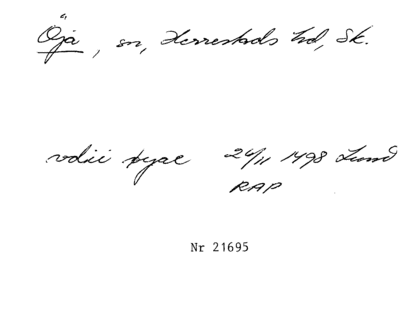 Öja, sn, Herrestads hd, Sk.
vdii øyae 26/11 1498 Lund
RAP
Nr 21695